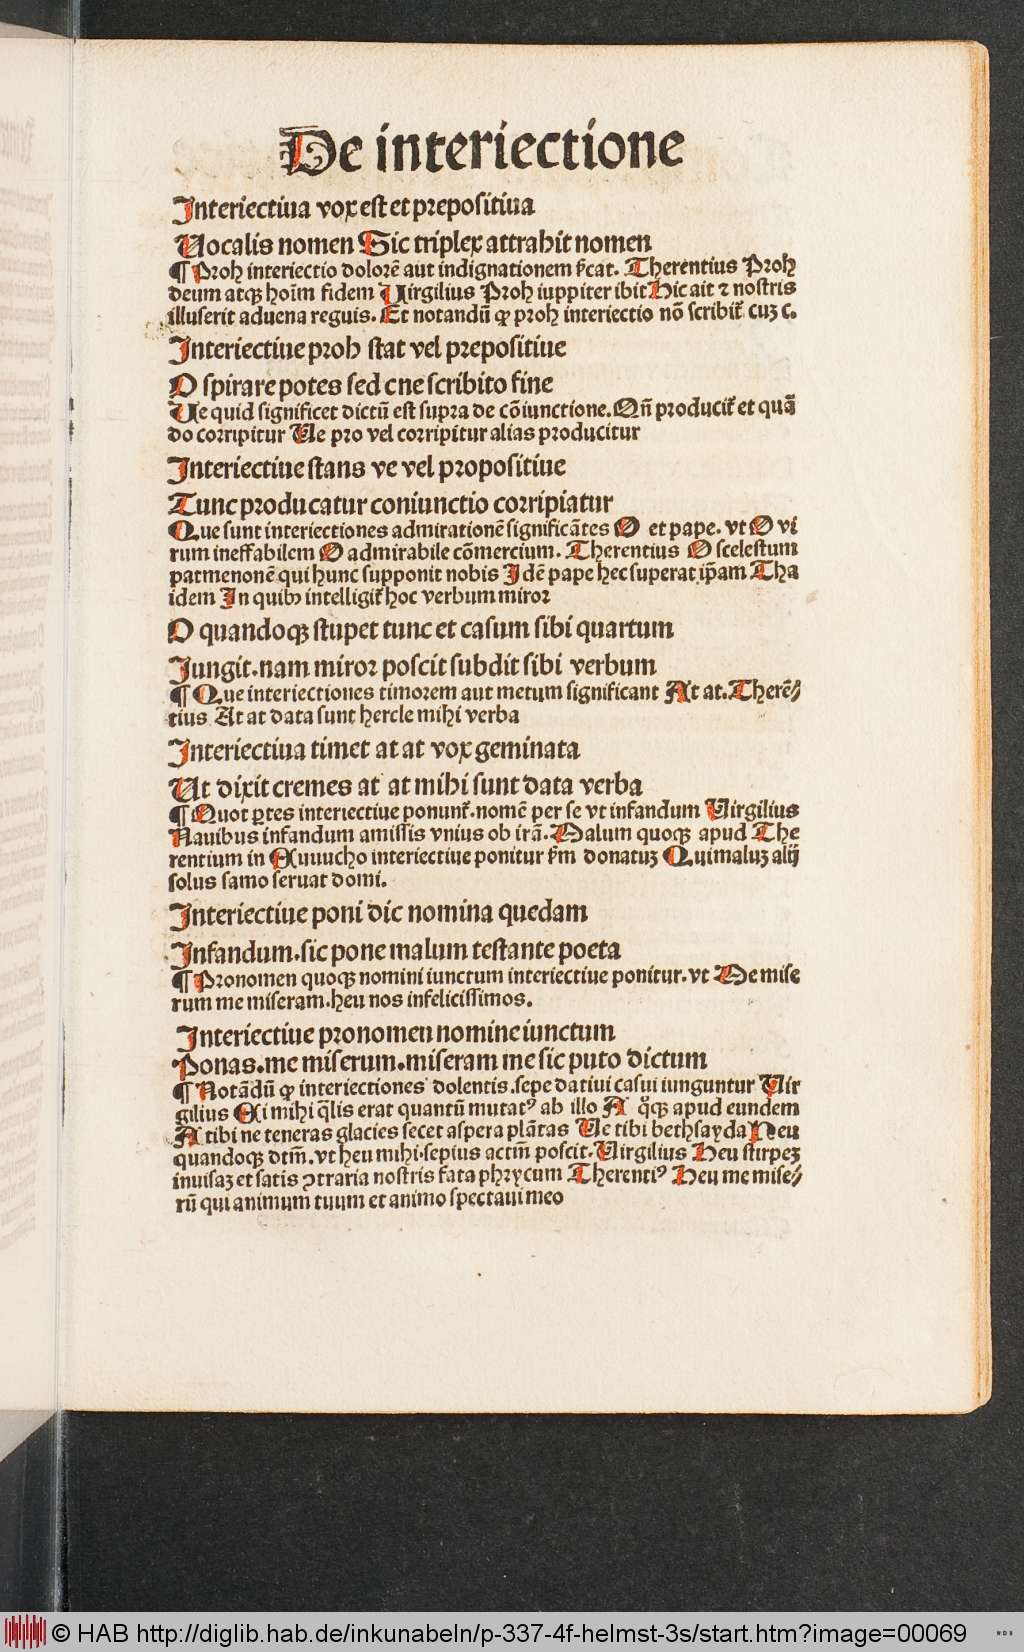 De interiectione
Interiectiua vox est et prepositiua
Uocalis nomen Sic triplex attrahit nomen
¶ Proh interiectio dolorē aut indignationem ſificat. Therentius Proh
deum atqꝫ hoīm fidem Uirgilius Proh iuppiter ibit Hic ait ⁊ nostris
illuserit aduena reguis. Et notandū ꝙ proh interiectio nō scribit᷑ cuꝫ c.
Interiectiue proh stat vel prepositiue
O spirare potes sed cne scribito fine
Ue quid significet dictū est supra de cōiunctione. Qn̄ producit᷑ et quā
do corripitur Ue pro vel corripitur alias producitur
Interiectiue stans ve vel propositiue
Tunc producatur coniunctio corripiatur
Que sunt interiectiones admirationē significātes O et pape. vt O vi
rum ineffabilem O admirabile cōmercium. Therentius O scelestum
patmenonē qui hunc supponit nobis Idē pape hec superat ip̄am Tha
idem In quibꝫ intelligit᷑ hoc verbum miror
O quandoqꝫ stupet tunc et casum sibi quartum
Jungit. nam miror poscit subdit sibi verbum
¶ Que interiectiones timorem aut metum significant At at. Therē⸗
tius At at data sunt hercle mihi verba
Interiectiua timet at at vox geminata
Ut dixit cremes at at mihi sunt data verba
¶ Quot ꝑtes interiectiue ponunt᷑. nomē per se vt infandum Uirgilius
Nauibus infandum amissis vnius ob irā. Malum quoqꝫ apud The
rentium in Eunucho interiectiue ponitur ẜm donatuꝫ Qui maluꝫ alij
solus samo seruat domi.
Interiectiue poni dic nomina quedam
Infandum. sic pone malum testante poeta
¶ Pronomen quoqꝫ nomini iunctum interiectiue ponitur. vt Me mise
rum me miseram. heu nos infelicissimos.
Interiectiue pronomen nomine iunctum
Ponas. me miserum. miseram me sic puto dictum
¶ Notādū ꝙ interiectiones dolentis. sepe datiui casui iunguntur Uir
gilius Ei mihi q̄lis erat quantū mutatꝰ ab illo A q̊qꝫ apud eundem
A tibi ne teneras glacies secet aspera plātas Ue tibi bethsayda Heu
quandoqꝫ dtm̄. vt heu mihi. sepius actm̄ poscit. Uirgilius Heu stirpeꝫ
inuisaꝫ et satis ꝯtraria nostris fata phrycum Therentiꝰ Heu me mise⸗
rū qui animum tuum et animo spectaui meo
© HAB http://diglib.hab.de/inkunabeln/p-337-4f-helmst-3s/start.htm?image=00069